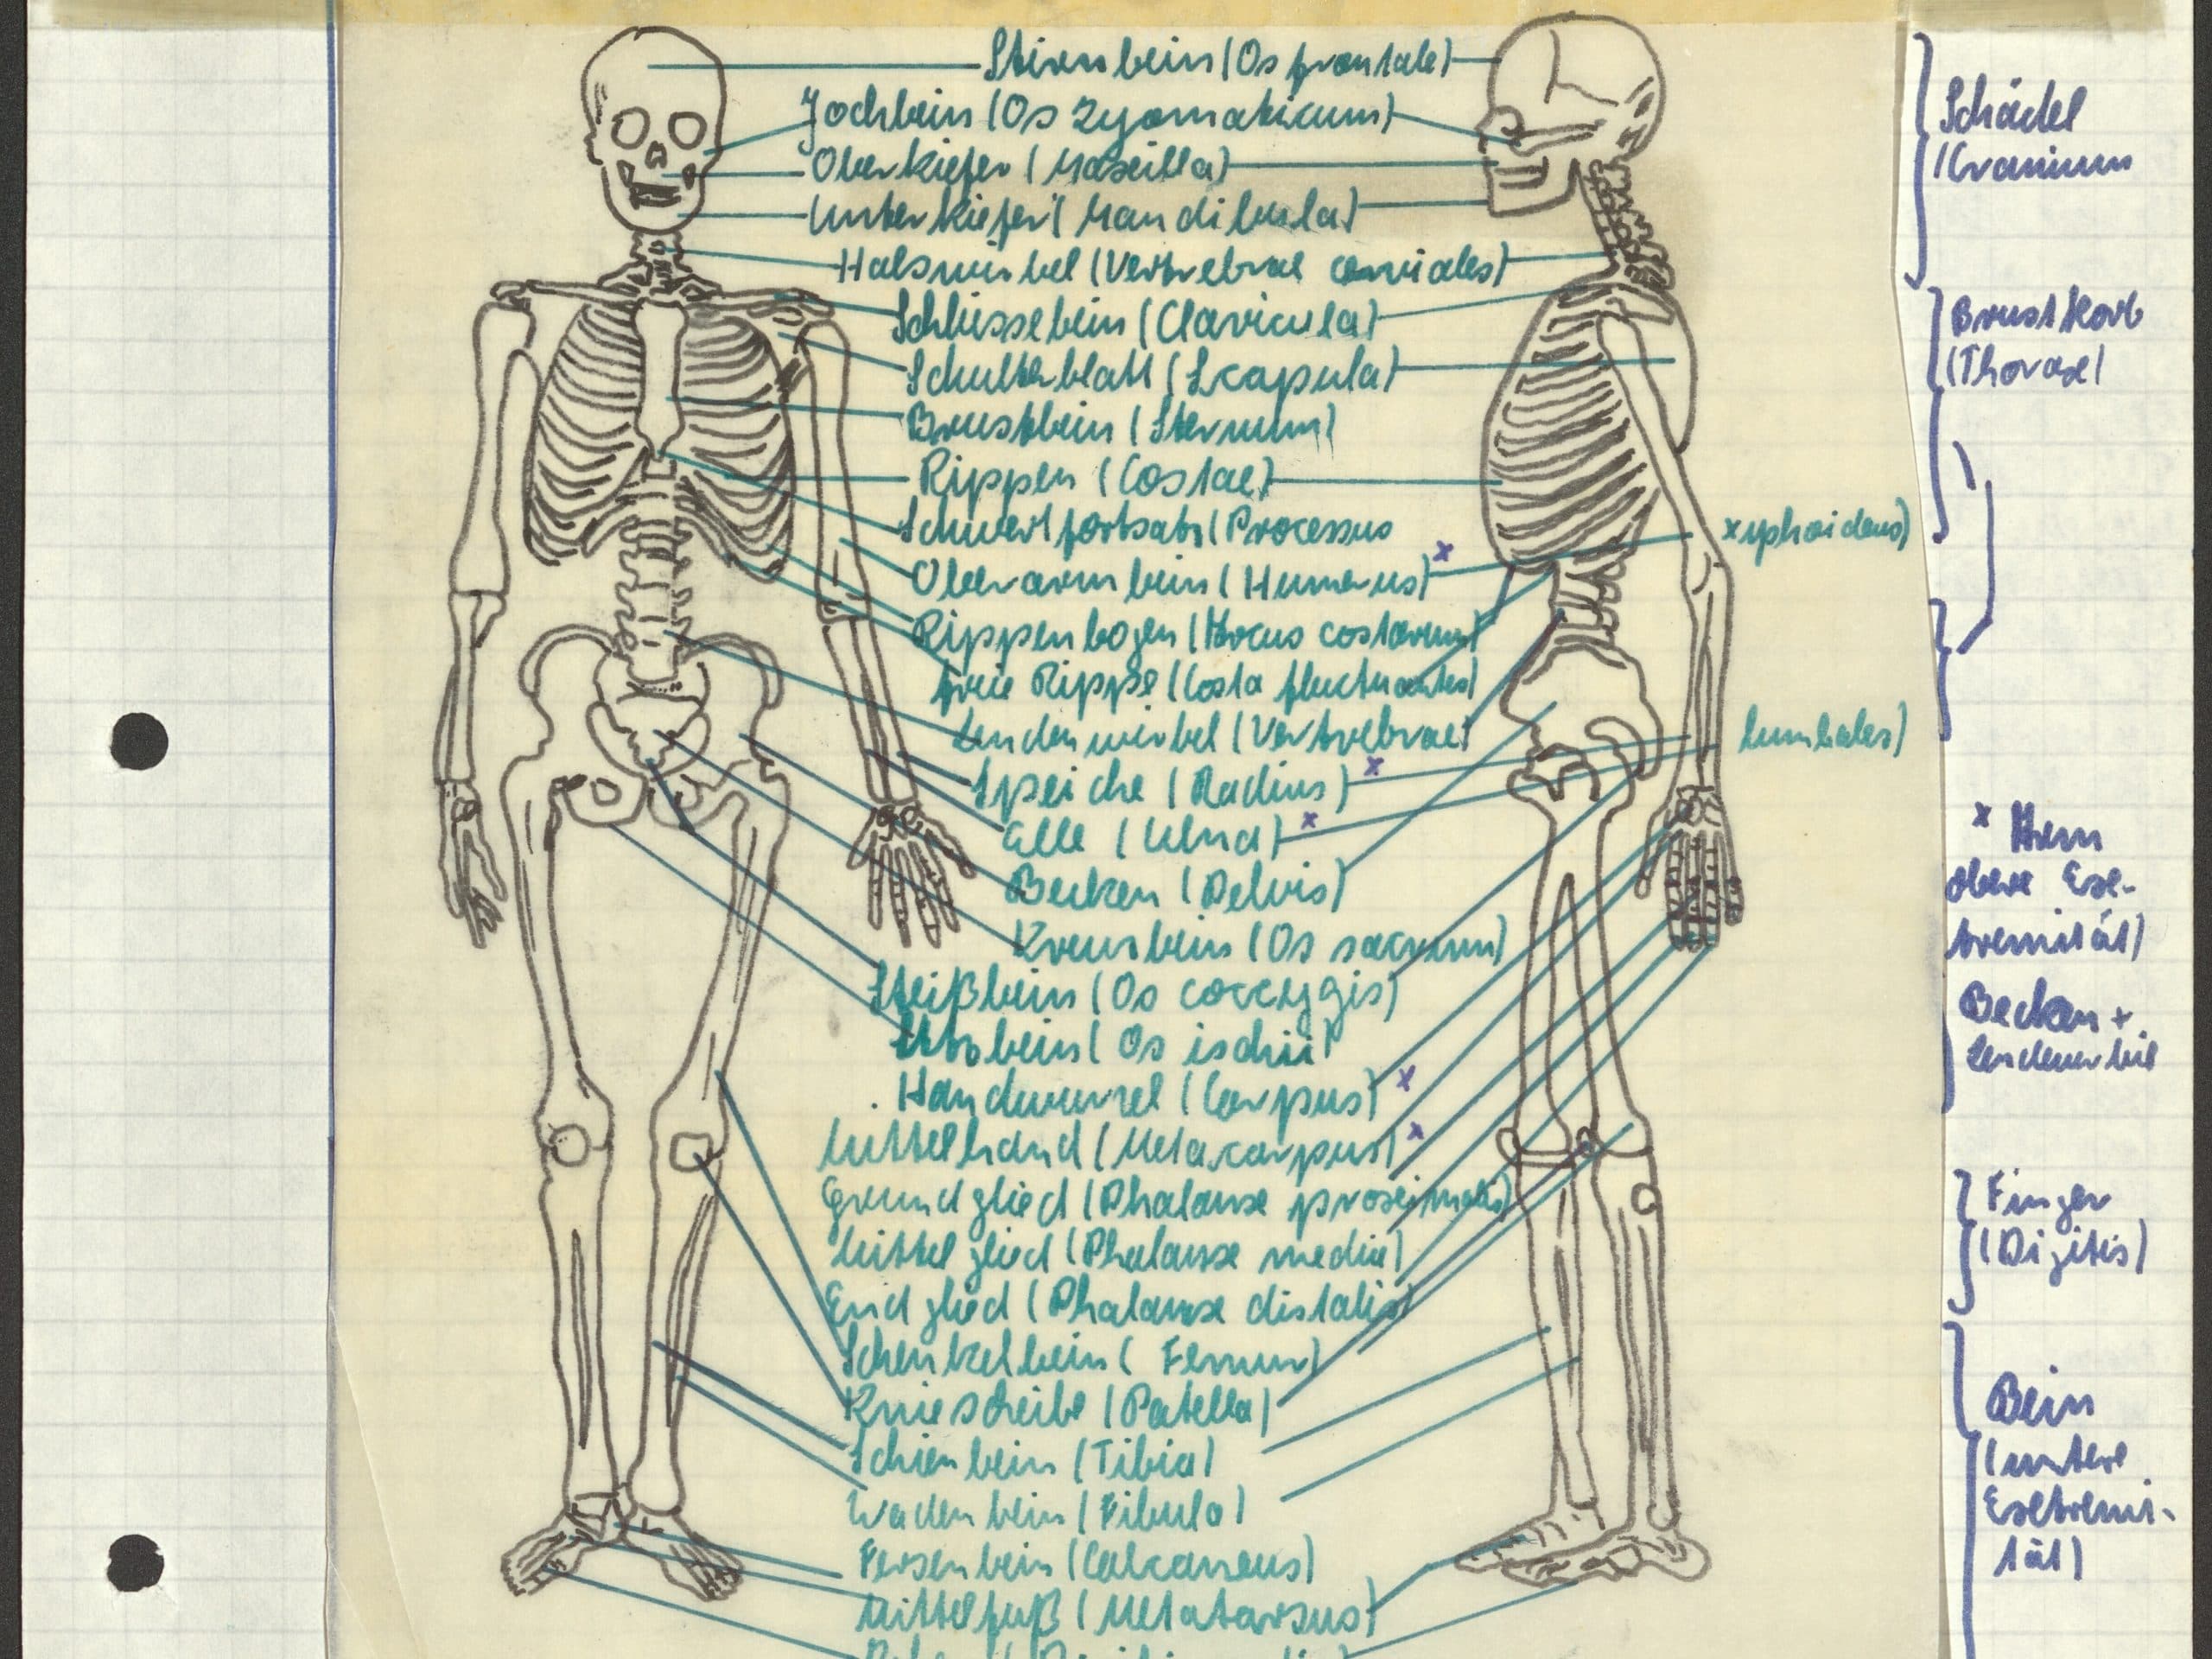 Stirnbein (Os frontale)
Jochbein (Os Zygomaticum)
Oberkiefer (Maxilla)
Unterkiefer (Mandibula)
Halswirbel (Vertrebrae cerviales)
Schlüssebein (Clavicula)
Schulterblatt (Scapula)
Brustbein (Sternum)
Rippen (Costae)
Schwertfortsatz (Processus xyphoideus)
Oberarmbein (Humerus) x
Rippenbogen (Arcus costarum)
freie Rippe (Costa fluctuantes)
Lendenwirbel (Vertrebrae lumbales)
Speiche (Radius) x
Elle (Ulna) x
Becken (Pelvis)
Kreuzbein (Os sacrum)
Steißbein (Os coccygis)
Sitzbein (Os ischii)
Handwurzel (Carpus) x
Mittelhand (Metacarpus) x
Grundglied (Phalanx proximalis)
Mittelglied (Phalanx media)
Endglied (Phalanx distalis)
Schenkelbein (Femur)
Kniescheibe (Patella)
Schienbein (Tibia)
Wadenbein (Fibula)
Fersenbein (Calcaneus)
Mittelfuß (Metatarsus)
Schädel
(Cranium
Brustkorb
(Thorax)
x Arm
obere Ex-
tremität)
Becken +
Lendenwirbel
Finger
(Digitis)
Bein
(untere
Extremi-
tät)